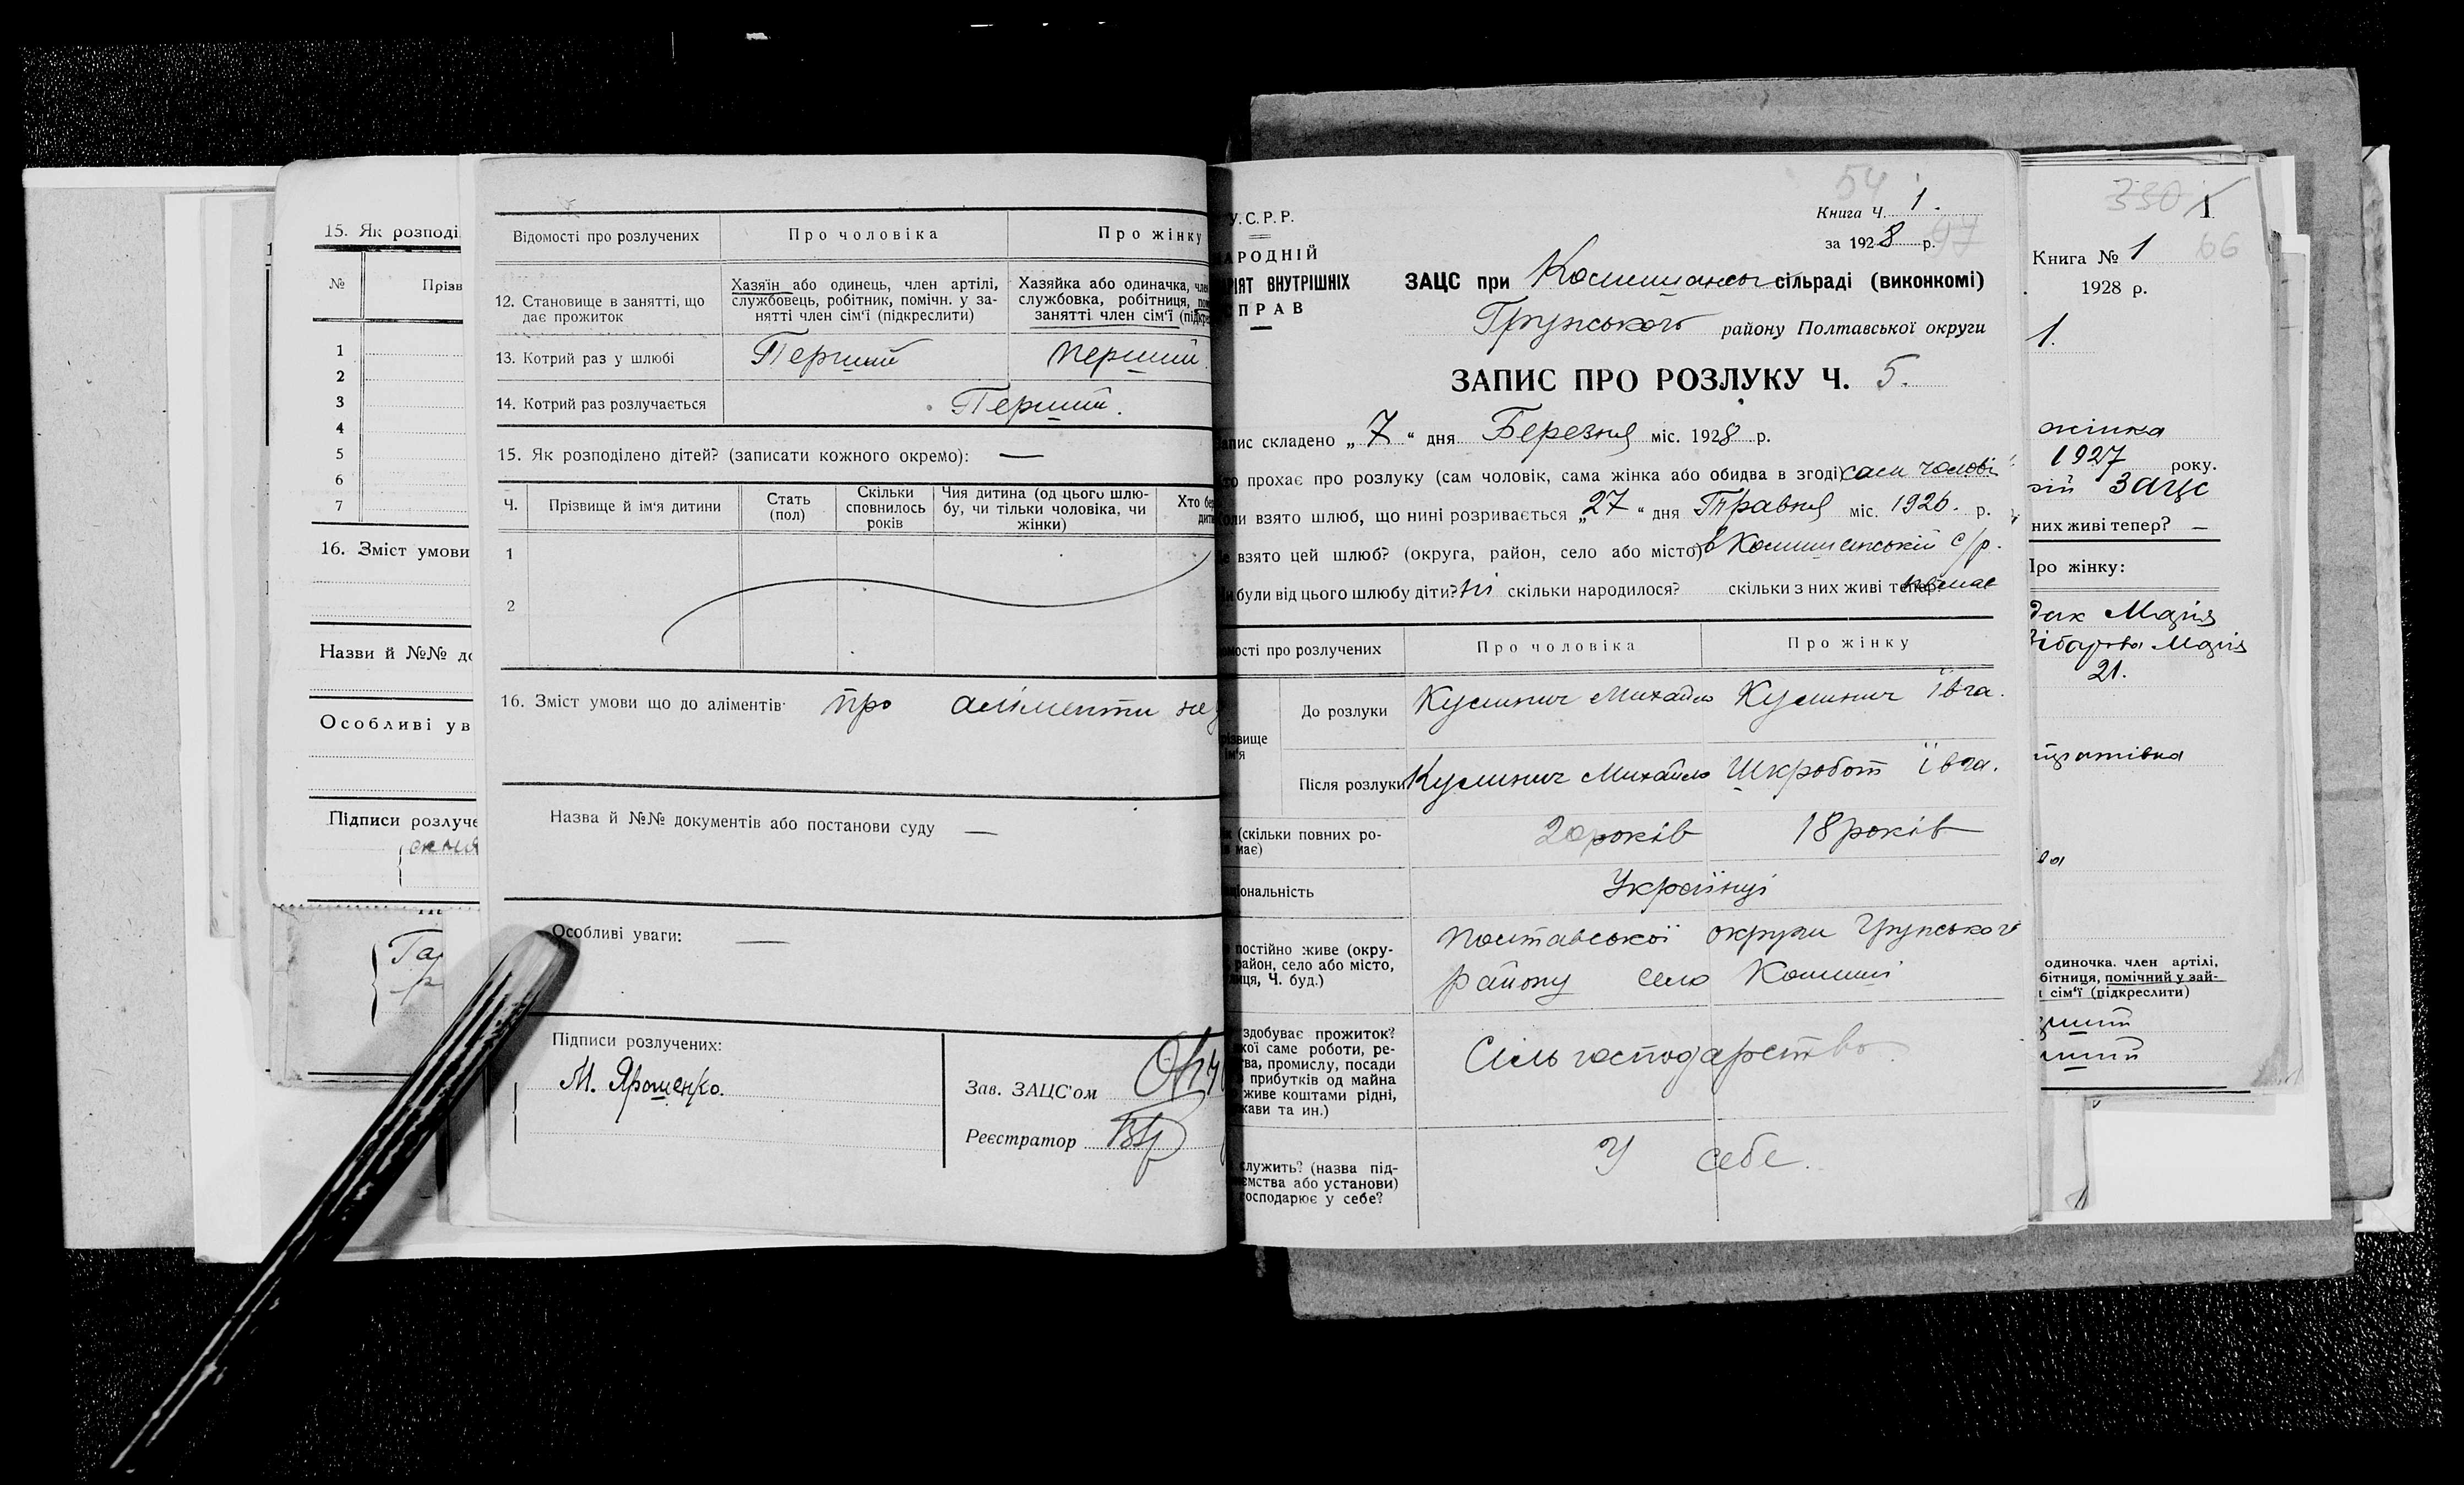 15. Як розподі
№ Прізв
1
2
3
4
5
6
7
16. Зміст умови
Назви й №№ до
Особливі ув
Підписи розлуче
Відомості про розлучених Про чоловіка Про жінку
12. Становище в занятті, що дає прожиток
Хазяїн або одинець, член артілі,
службовець, робітник, помічн. у за-
нятті член сім'ї (підкреслити)
Хазяйка або одиначка, член
службовка, робітниця, пом
занятті член сім'ї (підкре
13. Котрий раз у шлюбі Перший перший.
14. Котрий раз розлучається Перший.
15. Як розподілено дітей? (записати кожного окремо): —
Ч. Прізвище й ім'я дитини
Стать
(пол)
Скільки
сповнилось
років
Чия дитина (од цього шлю-
бу, чи тільки чоловіка, чи
жінки)
Хто бер
дити
1
2
16. Зміст умови що до аліментів про аліменти не
Назва й №№ документів або постанови суду —
Особливі уваги: —
Підписи розлучених:
М. Ярошенко.
Зав. ЗАЦС'ом
Реєстратор
54
У.С.Р.Р. Книга Ч. 1.
за 1928 р. 97
АРОДНІЙ
РІЯТ ВНУТРІШНІХ
ПРАВ
ЗАЦС при Комишанські сільраді (виконкомі)
Грунського району Полтавської округи
ЗАПИС ПРО РОЗЛУКУ Ч. 5.
апис складено „7" дня Березня міс. 1928 р.
то прохає про розлуку (сам чоловік, сама жінка або обидва в згоді) сам чолові
оли взято шлюб, що нині розривається „27" дня Травня міс. 1926. р.
е взято цей шлюб? (округа, район, село або місто) в Комишанській с/р.
и були від цього шлюбу діти? ні скільки народилося? скільки з них живі тепер немає
омості про розлучених Про чоловіка Про жінку
різвище
ім'я
До розлуки Кусинич Михайло Кусинич Івга.
Після розлуки Кусинич Михайло Шкробот Івга.
к (скільки повних ро-
ів має)
20 років 18 років
ціональність Українці
постійно живе (окру-
район, село або місто,
лиця, Ч. буд.)
Полтавської округи Грунського
району село Комиші
здобуває прожиток?
кої саме роботи, ре-
тва, промислу, посади
прибутків од майна
живе коштами рідні,
жави та ин.)
Сільгосподарство.
служить? (назва під-
ємства або установи)
господарює у себе?
У себе.
330 1
Книга № 1 66
1928 р.
1.
жінка
1927 року.
зацс
них живі тепер? —
Про жінку:
дак Марія
Марія
21.
одиночка. член артілі,
бітниця, помічний у зай-
сім'ї (підкреслити)